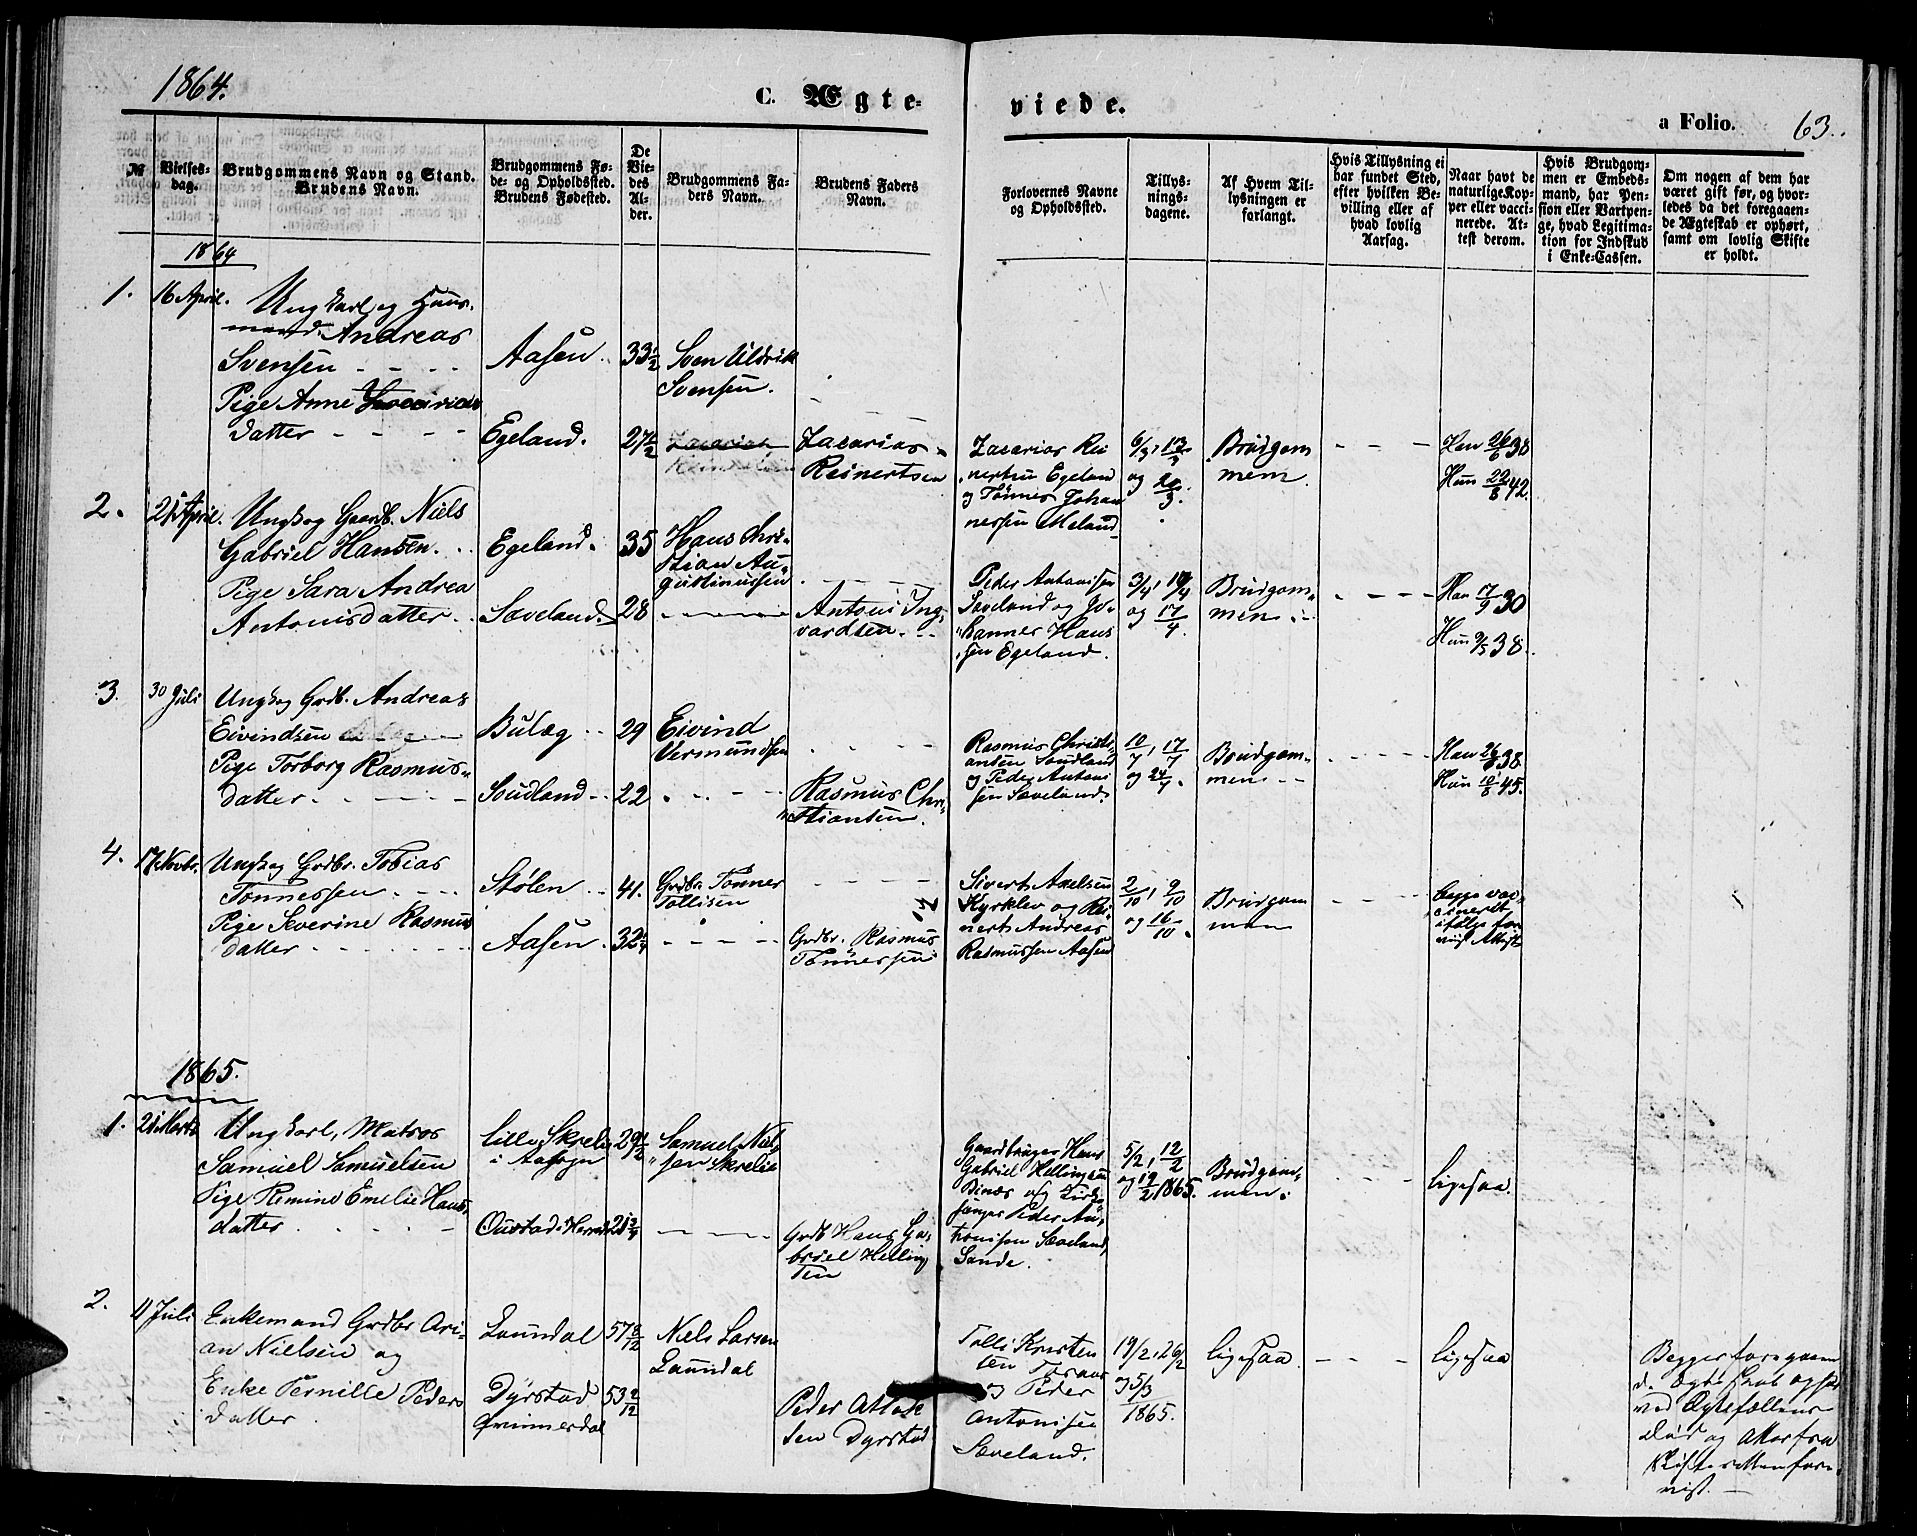 1864.
C. Ægte-
viede.
a Folio. 63.
№
Vielses-
dag.
Brudgommens Navn og Stand.
Brudens Navn.
Brudgommens Fø-
de- og Opholdssted.
Brudens Fødested.
De
Vie-
des
Al-
der.
Brudgommens Fa-
ders Navn.
Brudens Faders
Navn.
Forlovernes Navne
og Opholdssted.
Tillys-
nings-
dagene.
Af Hvem Til-
lysningen er
forlangt.
Hvis Tillysning ei
har fundet Sted,
efter hvilken Be-
villing eller af
hvad lovlig
Aarsag.
Naar havt de
naturlige Kop-
per eller vacci-
nerede. At-
test derom.
Hvis Brudgom-
men er Embeds-
mand, har Pen-
sion eller Vartpen-
ge, hvad Legitima-
tion for Indskud
i Enke-Cassen.
Om nogen af dem har
været gift før, og hvor-
ledes da det foregaaen-
de Ægteskab er ophørt,
samt om lovlig Skifte
er holdt.
1864
1. 16 April.
Ungkarl og Huus-
mand Andreas
Svensen - - - -
Aasen. 33 1/2
Sven Uldrik
Svensen.
Pige Anne
datter - - - -
Egeland. 27 1/2
Zacarias
Zacarias
Reinertsen
Zacarias Rei
nertsen Egeland
og Tønnes Johan
nessen Meland
6/3, 13/3
og 20/3.
Brudgom
mem.
Han 26/6 38
Hun 22/8 42.
2. 21 April.
Ungk og Gaardb. Niels
Gabriel Hansen.
Egeland. 35
Hans Chri-
stian Au-
gustinussen
Pige Sara Andrea
Antonisdatter
Sæveland. 28
Antonis Ing-
vardsen.
Peder Antonisen
Sæveland og Jo-
hannes Hans
sen Egeland.
3/4, 10/4
og 17/4.
Brudgom-
men.
Han 17/9 30
Hun 9/5 38.
3. 30 Juli
Ungk og Grdb. Andreas
Eivindsen
Bulæg 29
Eivind
Vermundsen
Pige Torborg Rasmus-
datter
Soudland 22
Rasmus Chri-
stiansen.
Rasmus Christi-
ansen Soudland
og Peder Antoni
sen Sæveland.
10/7, 17/7
og 24/7.
Brudgom-
men
Han 26/6 38.
Hun 10/8 45.
4. 17 Novbr.
Ungk og Grdbr. Tobias
Tønnessen.
Stølen 41.
Grdbr. Tønnes
Tollisen
Pige Severine Rasmus
datter
Aasen. 32 1/4
Grdbr. Rasmus
Tønnessen
Sivert Axelsen
Kyrklev og Rei-
nert Andreas
Rasmussen Aasen
2/10, 9/10
og 16/10.
Brudgom
men
begge vac-
cineret
ifølge fore
vist Attest
1865.
1. 21 Marts
Ungkarl, Matros
Samuel Samuelsen
Lille Skrelie
i Aasogn
29 1/2
Samuel Niel-
sen Skrelie
Pige Remine Emelie Hans-
datter
Oustad i Herred
21 3/4
Grdb Hans Ga-
briel Helling
sen
Gaardbruger Hans
Gabriel Hellingsen
Binæs og Kirk-
sanger Peder An-
tonisen Sæveland,
Sande.
5/2, 12/2
og 19/2 1865.
Brudgom-
men.
ligesaa.
2. 4 Juli
Enkemand Grdbr Ari-
an Nielsen og
Laundal 57 8/12
Niels Larsen
Laundal
Enke Pernille Peders
datter.
Dyrstad
Qvinnesdal
53 2/12
Peder Atlak
sen Dyrstad
Tolli Knuten
sen
og Peder
Antonisen
Sæveland.
19/2, 26/2
og 5/3
1865.
ligesaa.
ligesaa
Begges foregaaen
de Ægteskab ophørt
ved Ægtefællens
Død og Attest fra
Skifteretten fore-
vist.